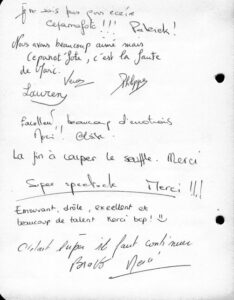 Je ne sais pas quoi écrire
Cepamafote !!! Patrick !
Nous avons beaucoup aimé mais
Cepanotfote, c'est la faute
de Marc.
Laurent Philippe
beaucoup d'émotions
Merci !
La fin à couper le souffle. Merci
Super spectacle Merci !!!
Emouvant, drôle, excellent et
beaucoup de talent Merci bcp !
C'était super il faut continuer
Bravo Merci